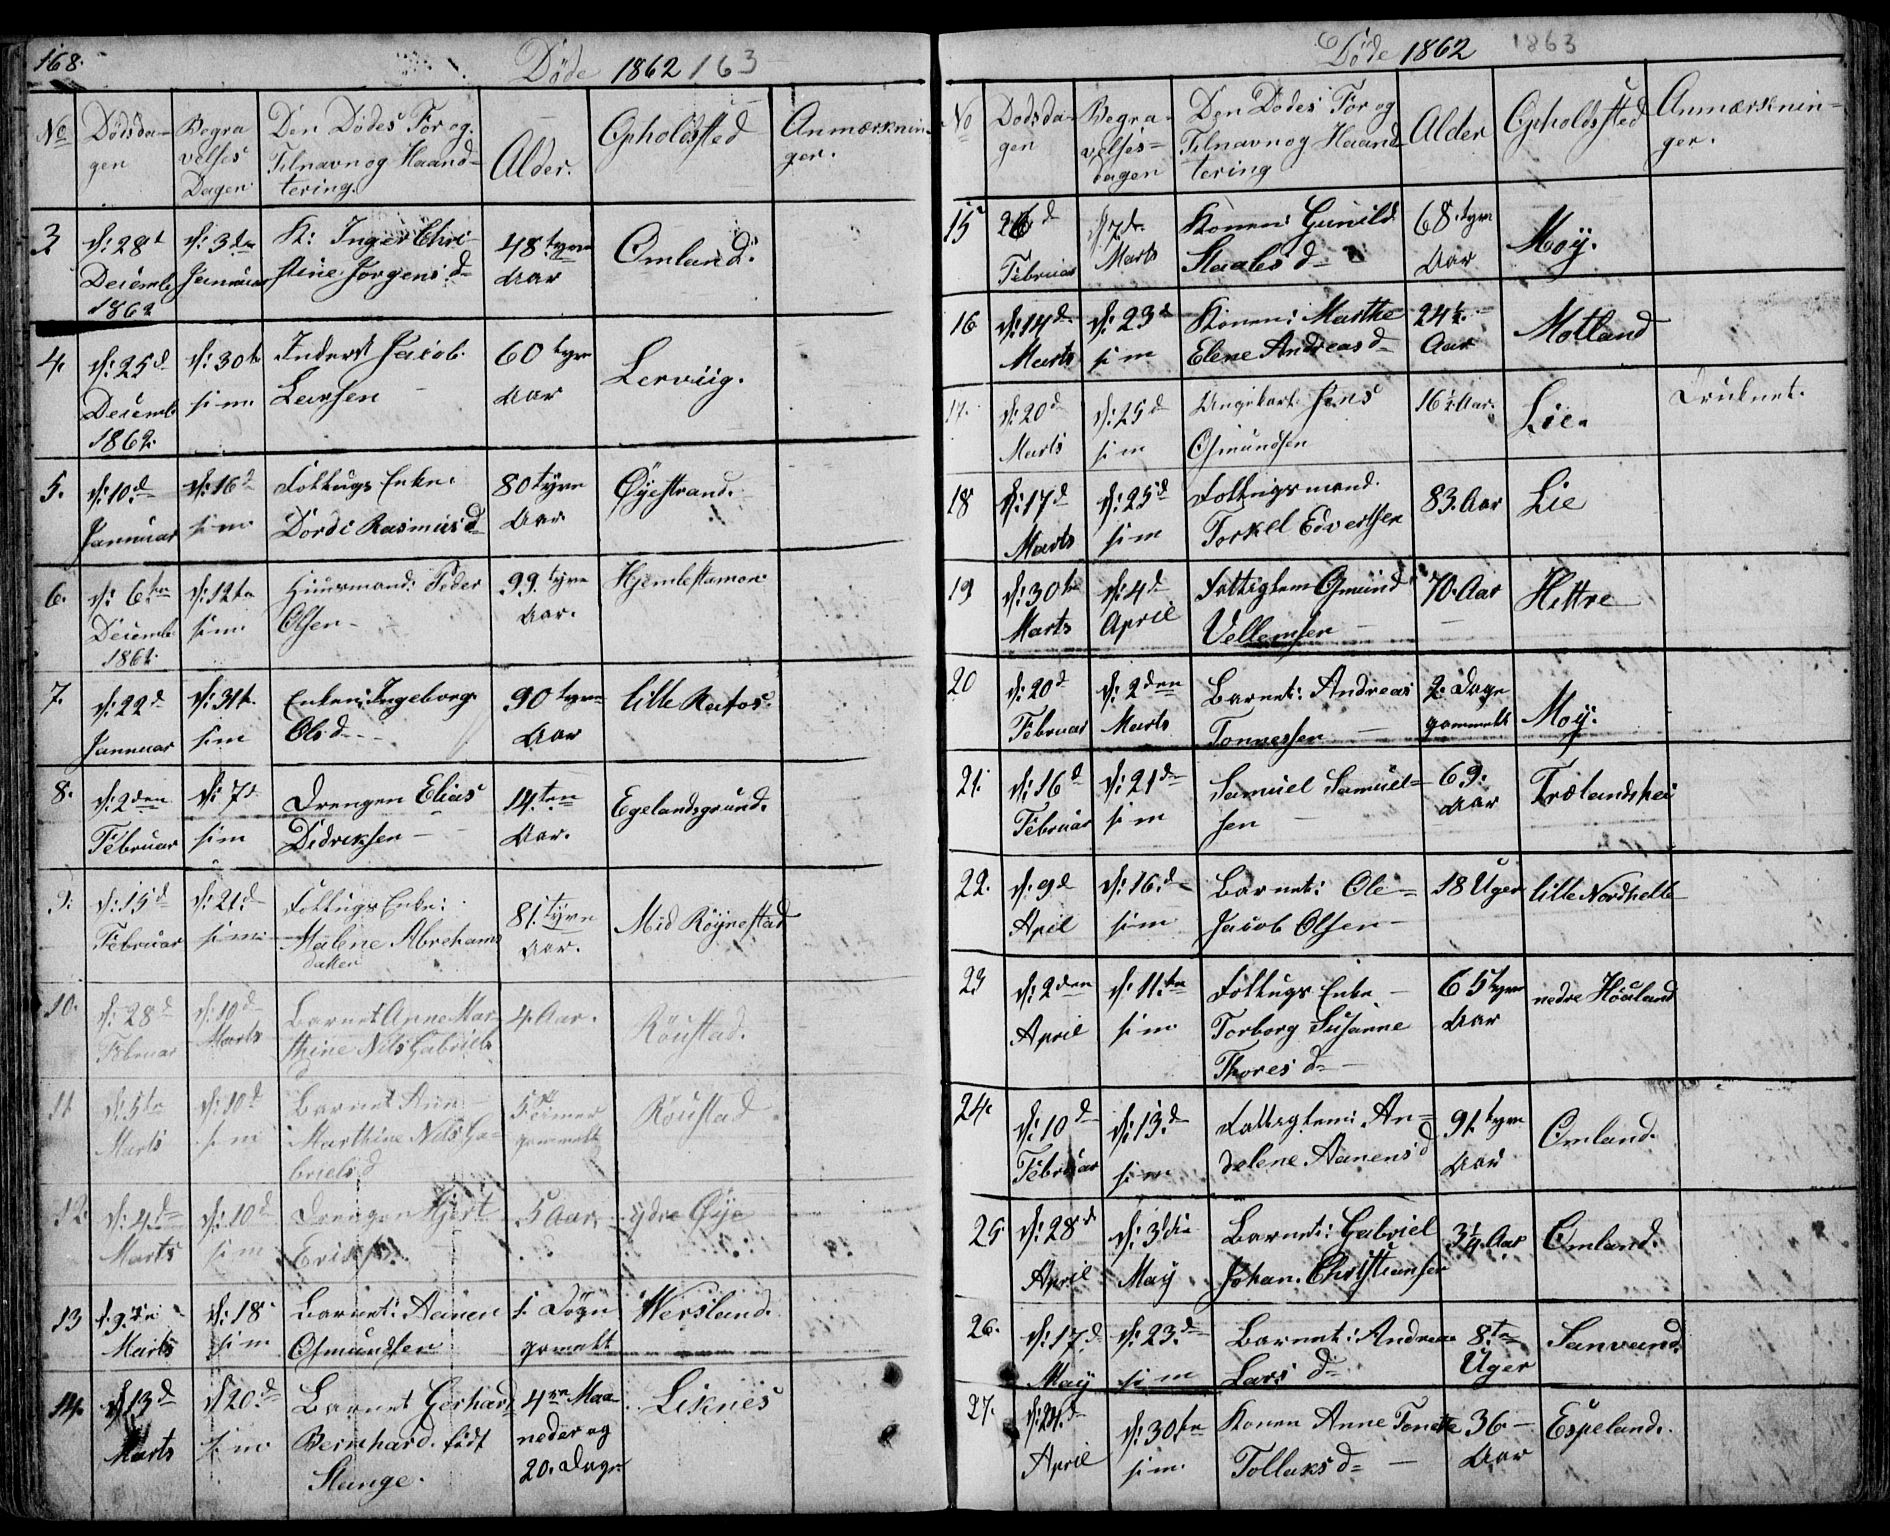 168.
Døde 1862 163
No
Dødsda-
gen
Begra
velses
Dagen
Den Dødes For og
Tilnavn og Haand-
tering.
Alder.
Opholdssted
Anmærknin-
ger.
3
d: 28d
Decemb
1862
d: 3die
Januuar
K: Inger Chri-
stine Jørgens d-
48 tyve
Aar
Omland.
4.
d: 25d
Decemb
1862.
d: 30te
s: m
Inderst Jacob
Larsen
60 tyve
Aar
Lerviig.
5.
d: 10d
Januuar
d: 16d
s: m.
Fottugs Enke:
Dorde Rasmus d
80 tyve
Aar.
Øyestrand.
6.
d: 6te
Decemb
1862.
d: 12te
s: m
Huusmand: Peder
Olsen-
99. tyve
Aar.
Hjemlestamon.
7.
d: 22d
Januuar
d: 31te
s: m
Enken: Ingeborg.
Ols d--
90 tyve
Aar
lille Refos.
8.
d: 2den
Februar
d: 7d
s: m
Drengen Elias
Didriksen -
14ten
Aar.
Egelandsgrund.
9.
d: 15d
Februar
d: 21d
s: m:
Fottugs Enke:
Malene Abrehams
datter
81. tyve
Aar.
Mid Röynestad
10.
d: 28d
Februar
d: 10d
Marts
Barnet Anne Mar-
thine Nils Gabriels
4. Aar.
Röustad.
11
d: 5te
Marts
d: 10d
s: m
Barnet Ann-
Marthine Nils Ga-
briels d
5
gammelt
Röustad
12.
d: 4de
Marts
d: 10d
s: m
Drengen Gjert
Eriks:
5 Aar,
ydre Øye
13
d. 9de
Marts
d: 18
s: m
Barnet: Aanen
Osmundsen
1 Døgn
gamelt
Wersland.
14.
d 13d
Marts
d 20.d
s: m
Barnet Gerhard
Bernhard. født
Stange.
4re Maa-
neder og
20. Dage
Liknes
Døde 1862 1863
No
Dødsda-
gen
Begra-
velses=
dagen
Den Dødes For og
Tilnavn og Haand
tering
Alder
Opholdssted
Anmærknin-
ger.
15
26d
Februar
d 7de
Marts
Konen: Gunild
Staales d-
68. tyve
Aar
Moÿ.
16
d: 14d
Marts
d: 23d
s: m
Konen: Marthe
Elene Andreas d-
24½.
Aar
Motland
17.
d: 20d
Marts
d: 25d
s: m
Ungekarl Jens
Osmundsen
16½ Aar.
Lie.
Druknet.
18
d: 17d
Marts
d: 25d
s: m
Fottugsmand.
Torkel Edvertsen
83. Aar
Lie
19
d: 30te
Marts
d: 4d
April
Fattiglem Osmund
Vellemsen
70. Aar
Hittre
20
d: 20d
Februar
d: 2den
Marts
Barnet: Andreas
Tonnessen
2. Dage
gammelt
Moÿ.
21.
d: 16d
Februar
d: 21de
s: m
Samuel Samuel=
sen
69.
Aar
Trælandshei
22.
d: 9d
April
d: 16.d
s: m
Barnet: Ole=
Jacob Olsen-
18 Uger
lille Nordhelle
23
d: 2den
April
d: 11.te
s: m.
Fottugs Enke-
Torborg Susanne
Thores d-
65 tyve
Aar
nedre Höuland
24.
d: 10d
Februar
d: 13.d
s: m
Fattiglem: An=
delene Aanens d
91. tyve
Aar
Omland.
25
d: 28d
April
d: 3die
May
Barnet: Gabriel
Johan. Christiansen
3¼. Aar
Omland.
26.
d: 17d
May
d: 23.d
s: m
Barnet: Andrea
Lars d-
8.te
Uger
Sanvand.
27.
d: 24.d
April
d: 30te
s: m.
Konen Anne Tonette
Tollaks d=
36-
Aar
Espeland.